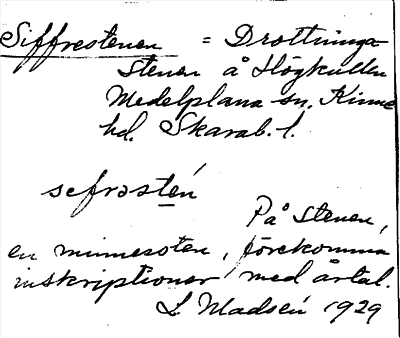 Siffrestenen = Drottninga-
stenen å Högkullen
Medelplana sn. Kinne
hd. Skarab. l.
sefrəstén
På stenen,
en minnessten, förekomma
inskriptioner med årtal.
L Madsén 1929